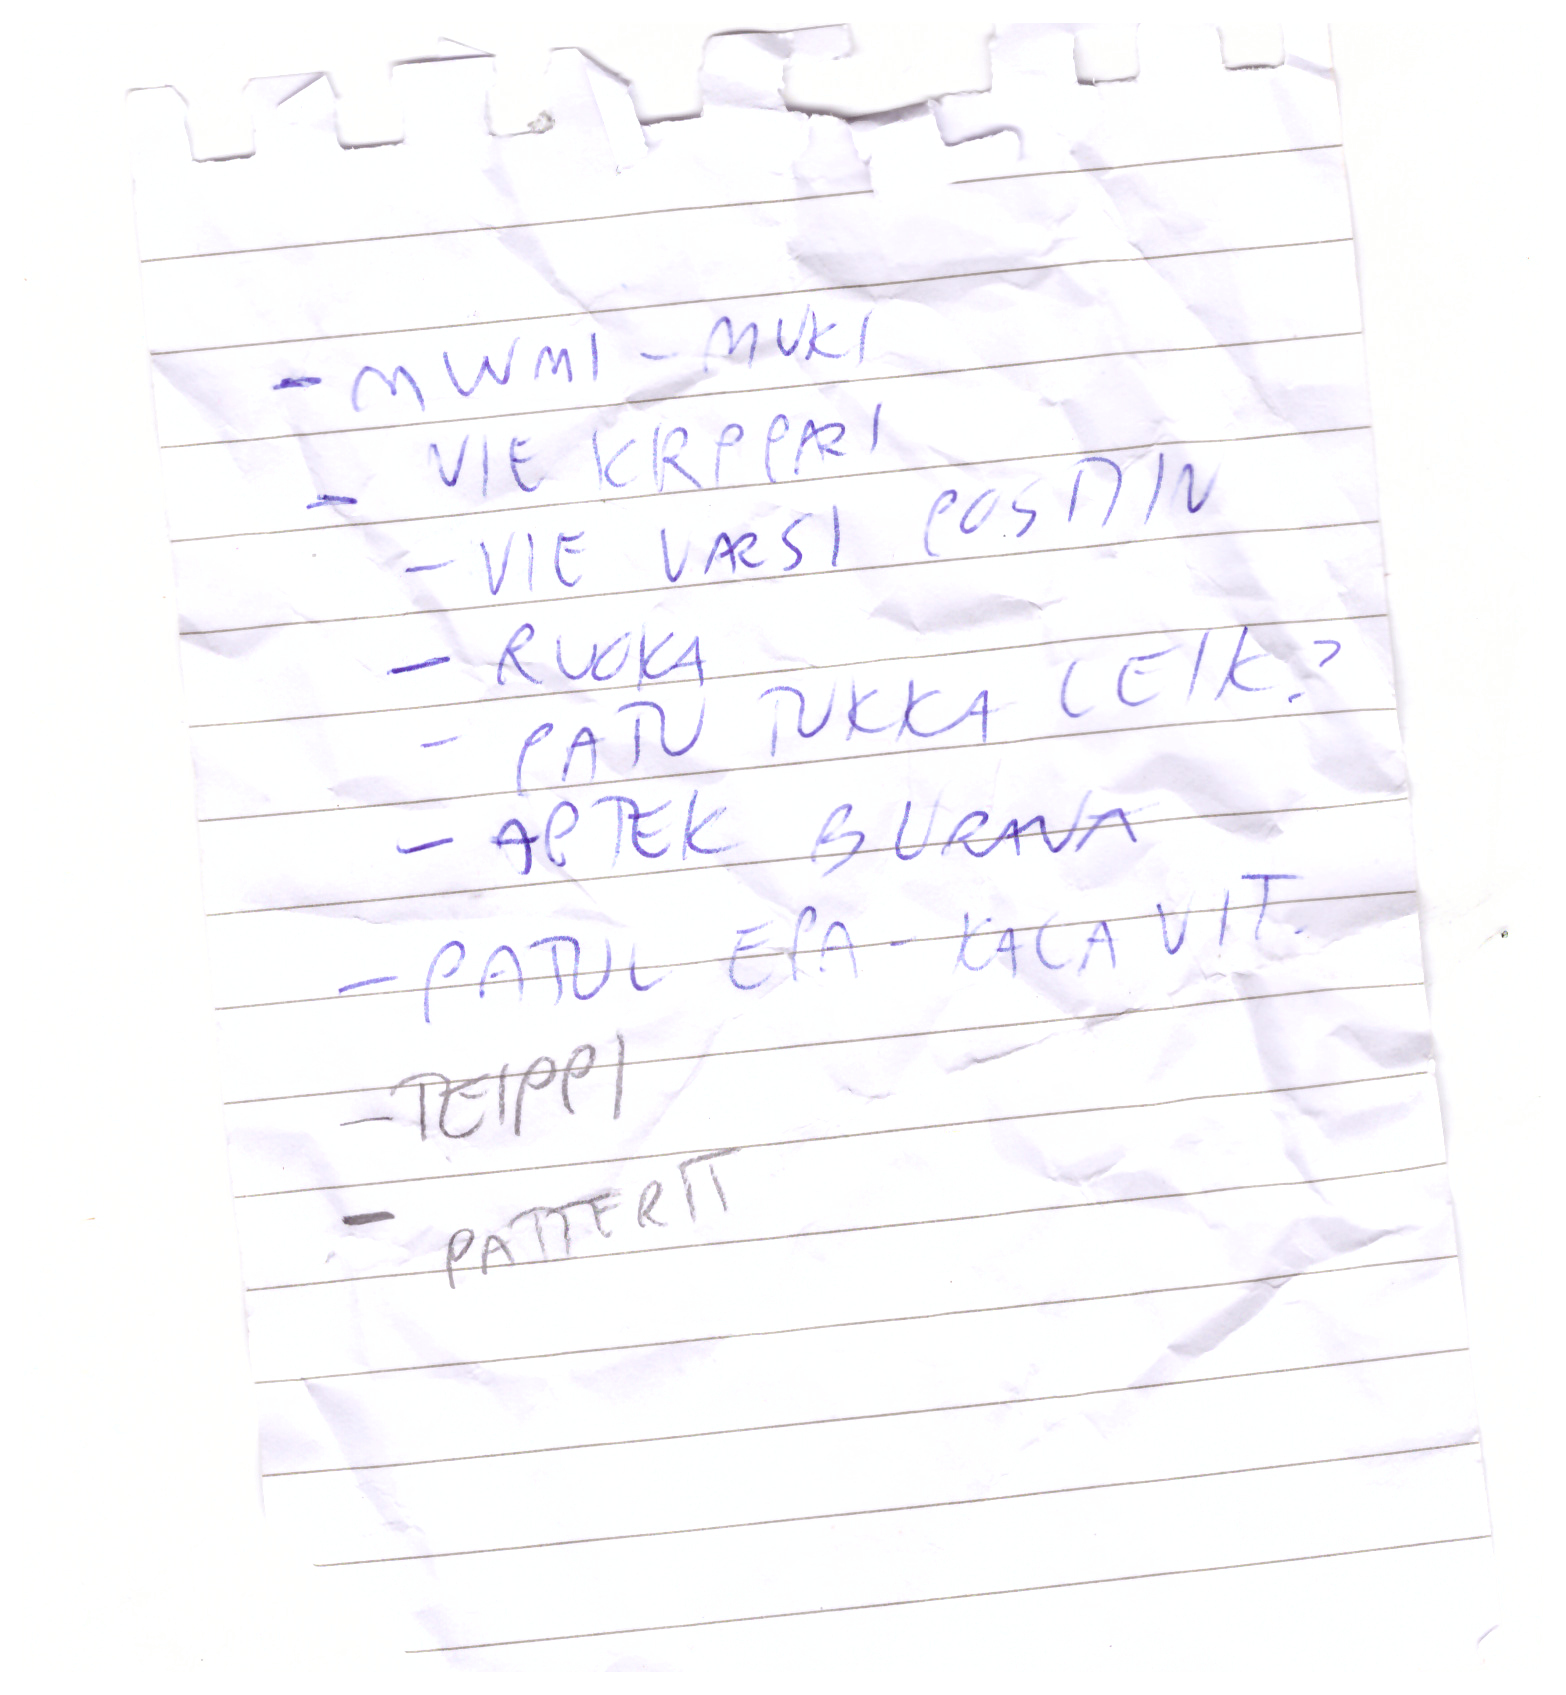 - MUUMI - MUKI
- VIE KRPPARI
- VIE VARSI POSTIIN
- RUOKA
- PATU TUKKA LEIK.?
- APTEK BURANA
- PATUL EPA - KALA VIT.
- TEIPPI
- PATTERIT